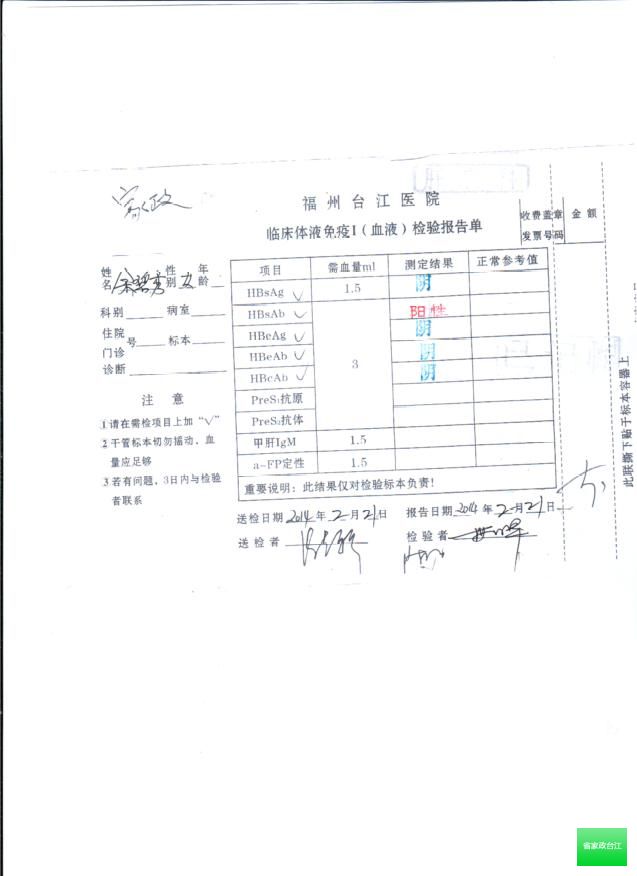 家政
福州台江医院
临床体液免疫I（血液）检验报告单
收费盖章 金额
发票号码
姓名 性别 女 年龄
科别 病室
住院
门诊 号 标本
诊断
注意
1请在需检项目上加“√”
2干管标本切勿摇动，血
量应足够
3若有问题，3日内与检验
者联系
项目 需血量ml 测定结果 正常参考值
HBsAg √ 1.5 阴
HBsAb √ 3 阳性
HBeAg √ 阴
HBeAb √ 阴
HBcAb √ 阴
PreS₁抗原
PreS₂抗体
甲肝IgM 1.5
a-FP定性 1.5
重要说明：此结果仅对检验标本负责！
送检日期 2014年2月21日 报告日期 2014年2月21日
送检者 检验者
此联撕下贴于标本容器上
省家政台江